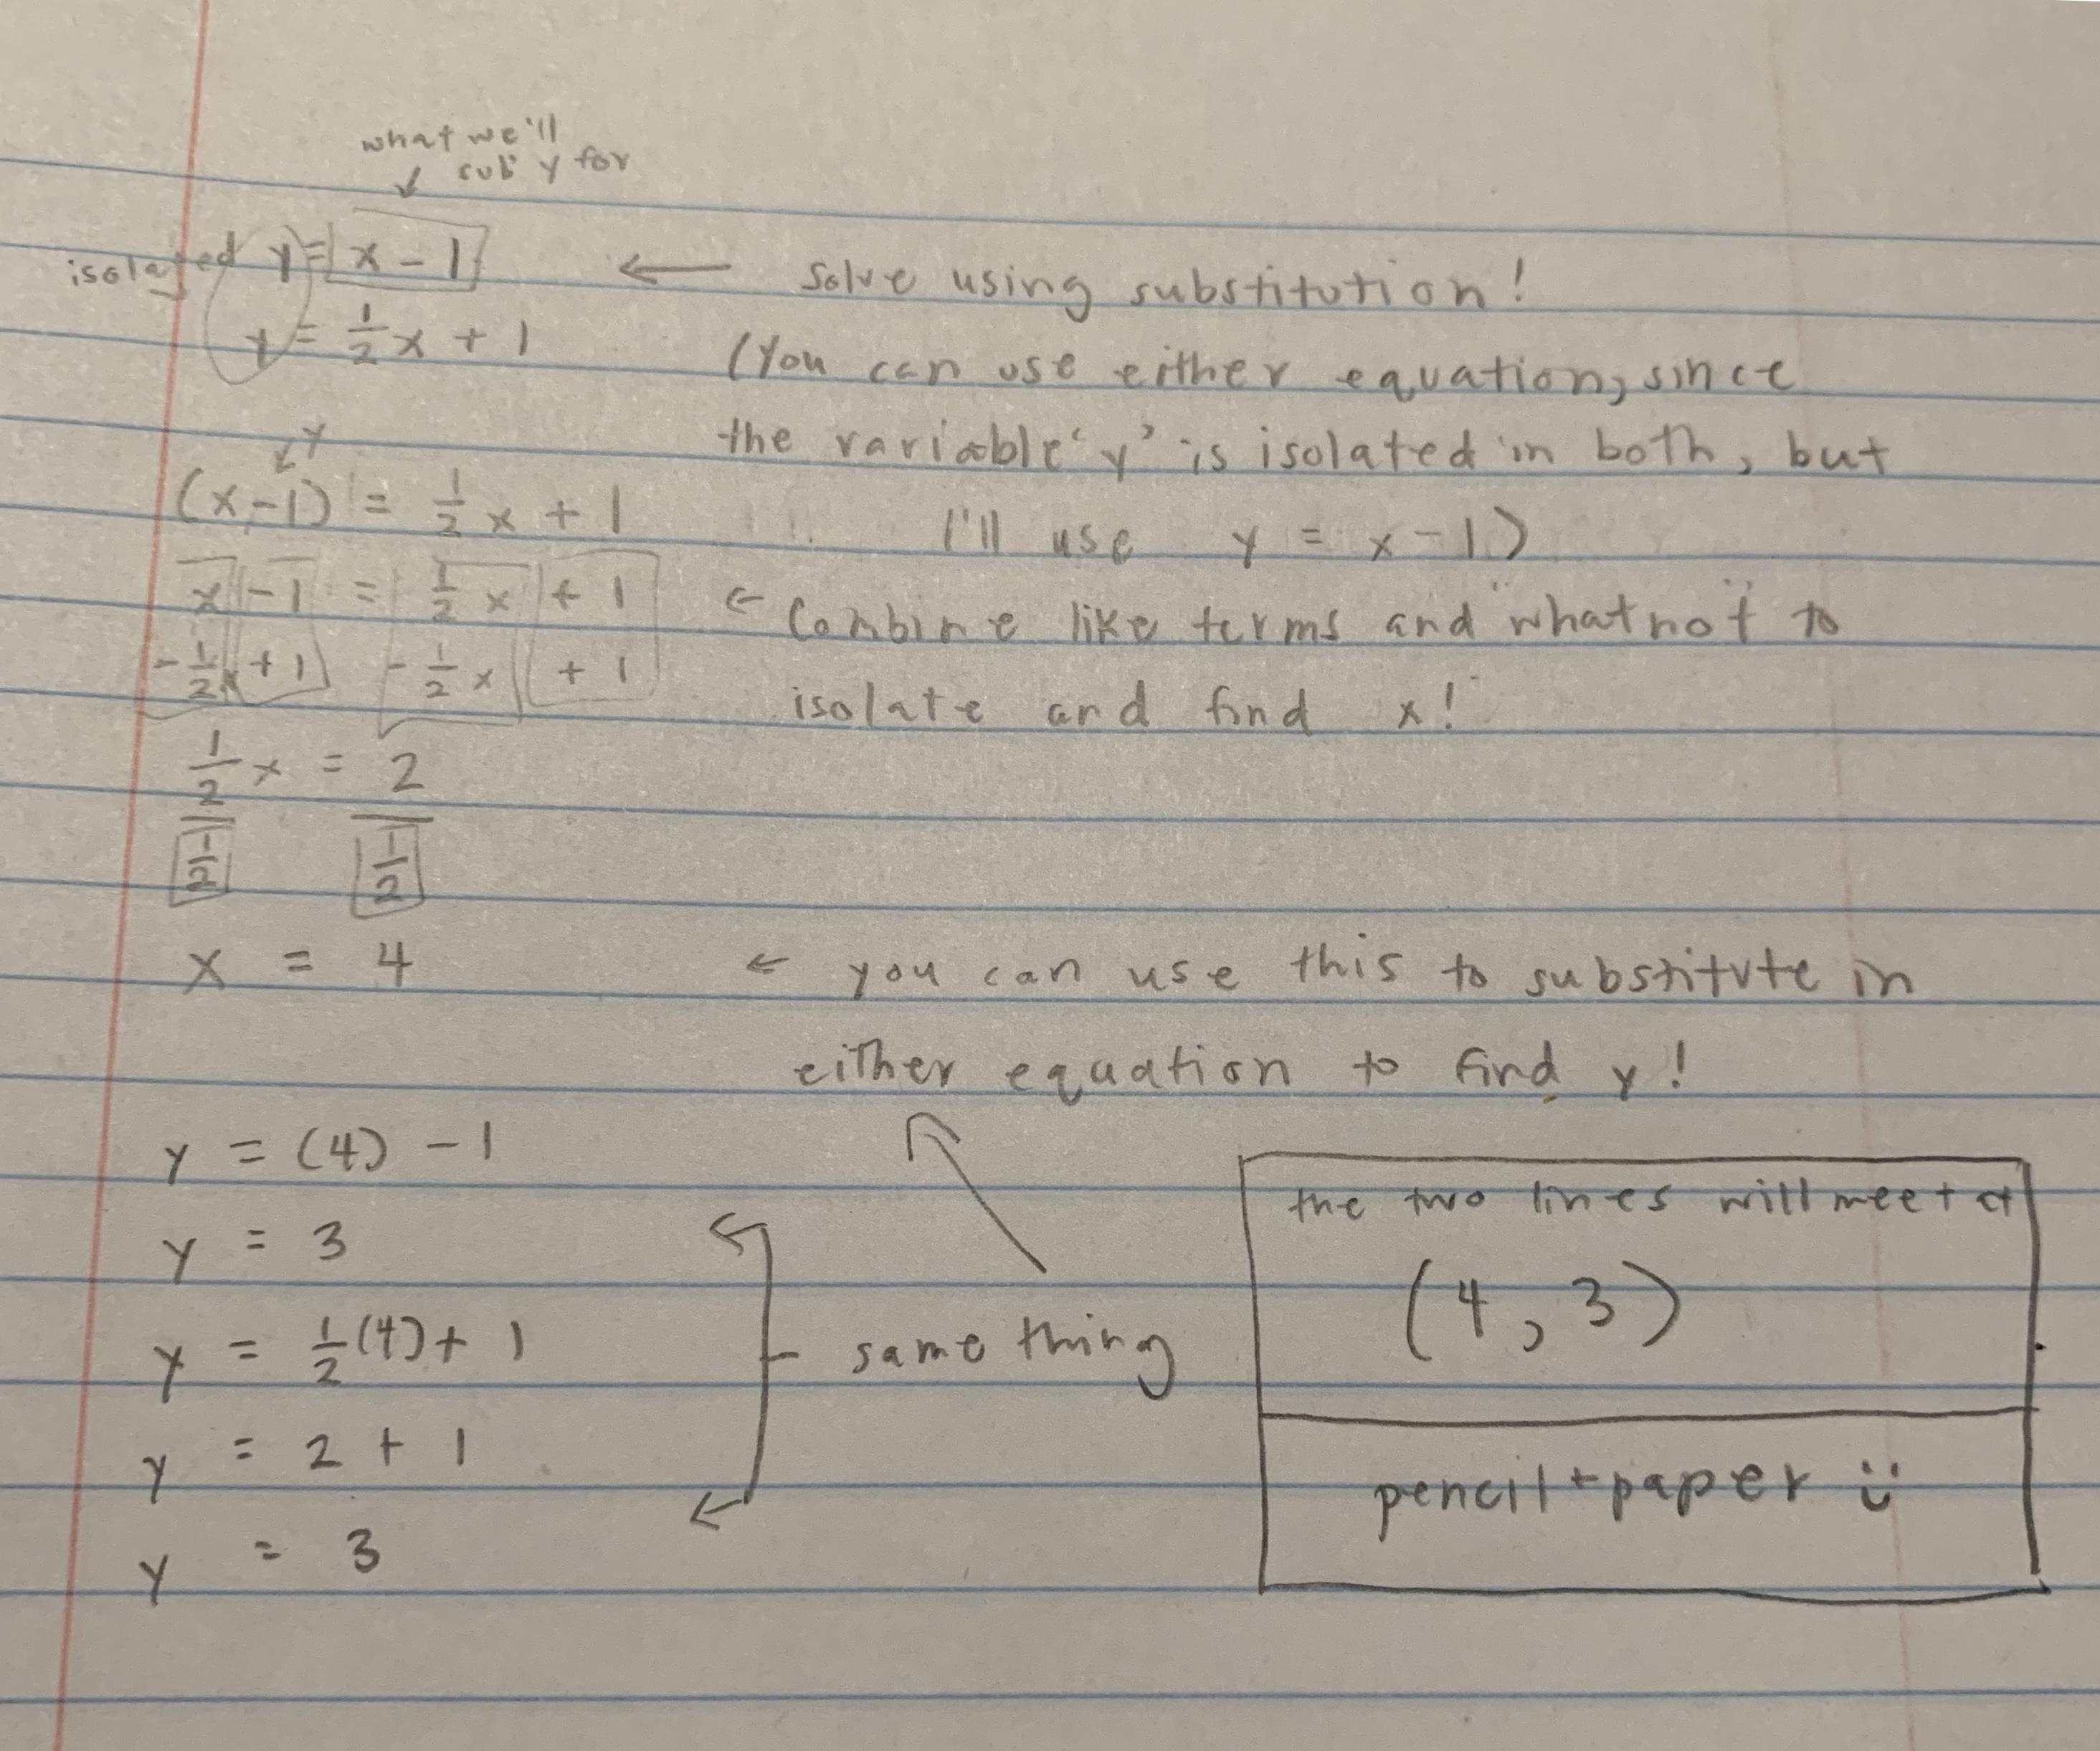 what we'll
sub y for
isolated y = x - 1 ← solve using substitution!
y = 1/2 x + 1 (You can use either equation, since
the variable 'y' is isolated in both, but
y
(x-1) = 1/2 x + 1 I'll use y = x - 1)
x - 1 = 1/2 x + 1 ← Combine like terms and "whatnot" to
- 1/2 x + 1 - 1/2 x + 1 isolate and find x!
1/2 x = 2
1/2 1/2
x = 4 ← you can use this to substitute in
either equation to find y!
y = (4) - 1
y = 3
y = 1/2 (4) + 1
y = 2 + 1
y = 3
same thing
the two lines will meet at
(4, 3)
pencil + paper :)